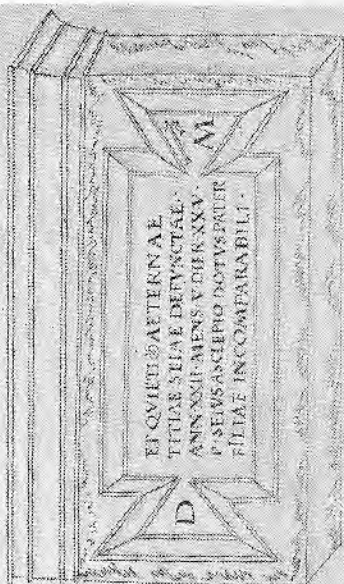 D M
ET QVIETI AETERNAE
TITIAE SEIAE DEFVNCTAE·
ANN·XXII·MENS·V·DIER·XXV·
P·SEIVS ASCLEPIODOTVS PATER
FILIAE INCOMPARABILI·